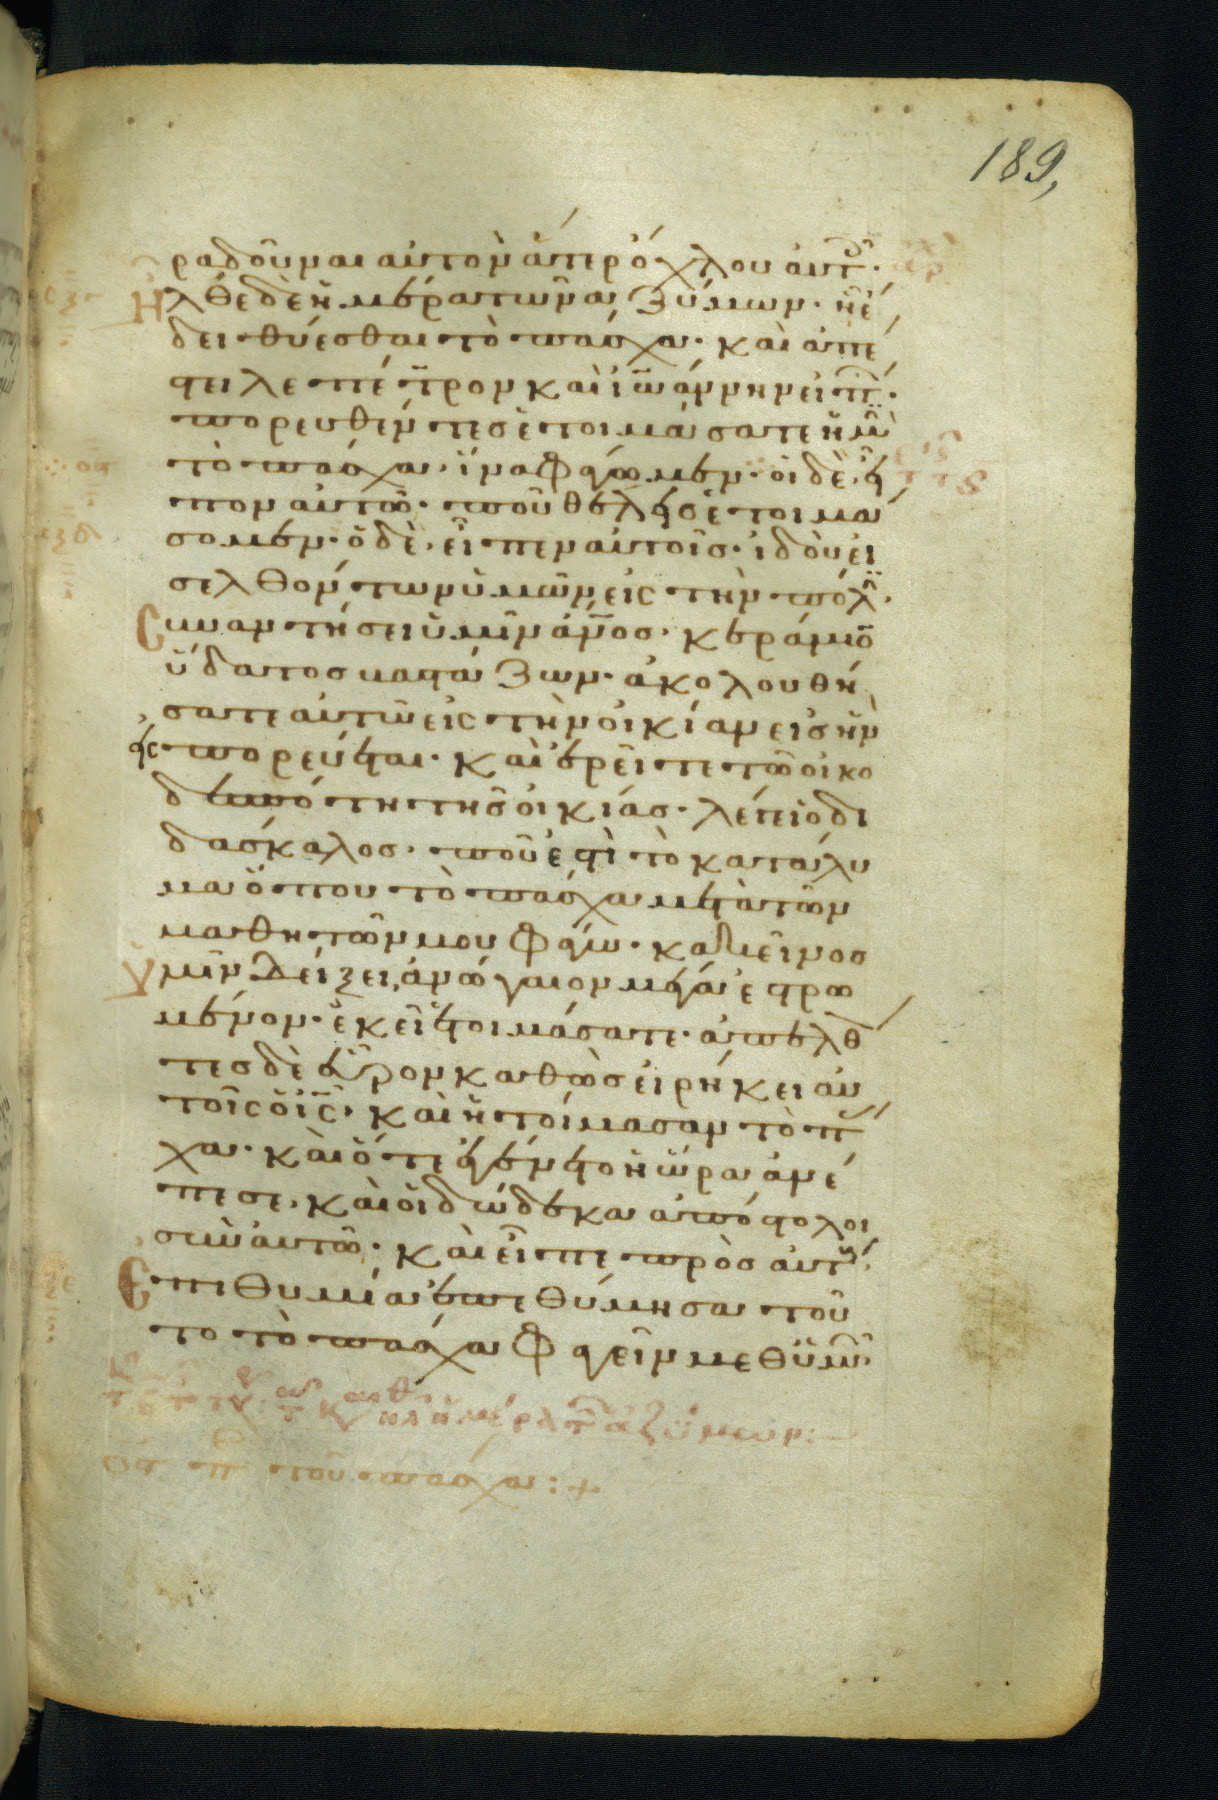 189,
ραδοῦναι αὐτὸν ἄτερ ὄχλου αὐτοῖ·
Ἦλθε δὲ ἡ ἡμέρα τῶν ἀζύμων· ἧ ἔ
δει θύεσθαι τὸ πάσχα· καὶ ἀπέ
στειλε πέτρον καὶ ἰωάννην εἰπ·
πορευθέντες ἑτοιμάσατε ἡμῖ
τὸ πάσχα· ἵνα φάγωμεν· οἱ δὲ εἶ
πον αὐτῶ· ποῦ θέλεις ἑτοιμά
σομεν· ὁ δὲ εἶπεν αὐτοῖς· ἰδοὺ εἰ
σελθόντων ὑμῶν εἰς τὴν πόλι·
Συναντήσει ὑμῖν ἄνος· κεράμιο
ὕδατος βαστάζων· ἀκολουθή
σατε αὐτῶ εἰς τὴν οἰκίαν εἰς ἣν
εἰσπορεύεται· καὶ ἐρεῖτε τῶ οἰκο
δεσπότη τῆς οἰκίας· λέγει ὁ δι
δάσκαλος· ποῦ ἐστὶ τὸ κατάλυ
μα ὅπου τὸ πάσχα μετὰ τῶν
μαθητῶν μου φάγω· κἀκεῖνος
Ὑμῖν δείξει ἀνώγαιον μέγα ἐστρω
μένον· ἐκεῖ ἑτοιμάσατε· ἀπελθ
τες δὲ εὗρον καθὼς εἰρήκει αὐ
τοῖς ὁ ις· καὶ ἡτοίμασαν τὸ πάσ
χα· καὶ ὅτε ἐγένετο ἡ ὥρα ἀνέ
πεσε· καὶ οἱ δώδεκα ἀπόστολοι
σὺν αὐτῶ· καὶ εἶπε πρὸς αὐτούς·
Ἐπιθυμία ἐπεθύμησα τοῦ
το τὸ πάσχα φαγεῖν μεθ ὑμῶ·
ἡμέρα τ ἀζύμων:
οστ π τοῦ πάσχα:+